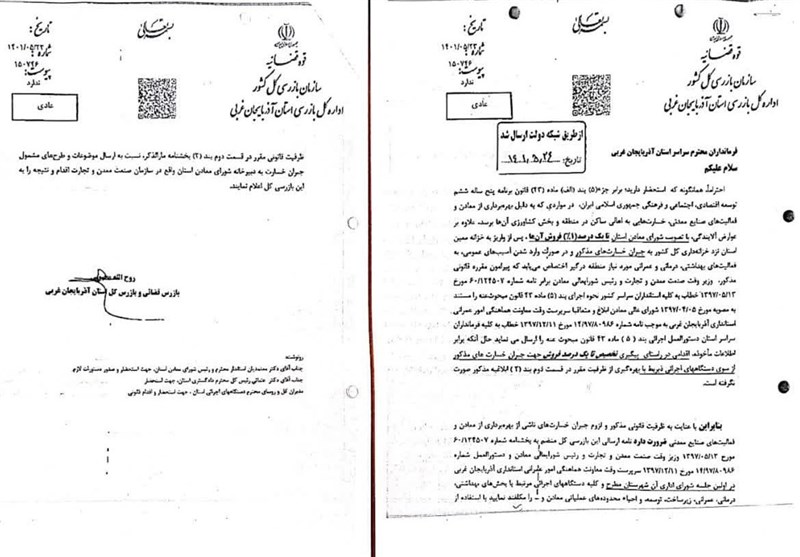 بسمه تعالی
قوه قضائیه
سازمان بازرسی کل کشور
اداره کل بازرسی استان آذربایجان غربی
تاریخ:
۱۴۰۱/۰۵/۲۳
شماره:
۱۵۰۷۴۶
پیوست:
ندارد
عادی
از طریق شبکه دولت ارسال شد
تاریخ: ۱۴۰۱/۵/۲۴
فرمانداران محترم سراسر استان آذربایجان غربی
سلام علیکم
احتراماً، همانگونه که استحضار دارید؛ برابر جزء(۵) بند (الف) ماده (۴۳) قانون برنامه پنج ساله ششم
توسعه اقتصادی، اجتماعی و فرهنگی جمهوری اسلامی ایران، در مواردی که بهره‌برداری از معادن و
فعالیت‌های صنایع معدنی، خسارت‌هایی به اهالی ساکن در منطقه و بخش کشاورزی آن‌ها برسد، علاوه بر
عوارض آلایندگی، با تصویب شورای معادن استان تا یک درصد(۱٪) فروش آن‌ها، پس از واریز به خزانه معین
استان نزد خزانه‌داری کل کشور به جبران خسارت‌های مذکور و در صورت وارد شدن آسیب‌های عمومی، به
فعالیت‌های بهداشتی، درمانی و عمرانی مورد نیاز منطقه درگیر اختصاص می‌یابد که پیرامون مقرره قانونی
مذکور، وزیر وقت صنعت معدن و تجارت و رئیس شورایعالی معادن برابر نامه شماره ۶۰/۱۲۴۵۰۷ مورخ
۱۳۹۷/۰۵/۱۳ خطاب به کلیه استانداران سراسر کشور نحوه اجرای بند (۵) ماده ۴۳ قانون مبحوث‌عنه را مستند
به مصوبه مورخ ۱۳۹۷/۰۴/۰۵ شورای عالی معادن ابلاغ و متعاقباً سرپرست وقت معاونت هماهنگی امور عمرانی
استانداری آذربایجان غربی به موجب نامه شماره ۱۴/۹۷/۸۰۹۸۶ مورخ ۱۳۹۷/۱۲/۱۱ خطاب به کلیه فرمانداران
سراسر استان دستورالعمل اجرائی بند (۵) ماده ۴۳ قانون مبحوث عنه را ارسال می نماید حال آنکه برابر
اطلاعات مأخوذه، اقدامی در راستای پیگیری تخصیص تا یک درصد فروش جهت جبران خسارت های مذکور
از سوی دستگاههای اجرائی ذیربط با بهره‌گیری از ظرفیت مقرر در قسمت دوم بند (۲) ابلاغیه مذکور صورت
نگرفته است.
بنابراین با عنایت به ظرفیت قانونی مذکور و لزوم جبران خسارت‌های ناشی از بهره‌برداری از معادن و
فعالیت‌های صنایع معدنی ضرورت دارد نامه ارسالی این بازرسی کل منضم به بخشنامه شماره ۶۰/۱۲۴۵۰۷
مورخ ۱۳۹۷/۰۵/۱۳ وزیر وقت صنعت معدن و تجارت و رئیس شورایعالی معادن و دستورالعمل شماره
۱۴/۹۷/۸۰۹۸۶ مورخ ۱۳۹۷/۱۲/۱۱ سرپرست وقت معاونت هماهنگی امور عمرانی استانداری آذربایجان غربی
در اولین جلسه شورای اداری آن شهرستان مطرح و کلیه دستگاههای اجرائی مرتبط با بخش‌های بهداشتی،
درمانی، عمرانی، زیرساخت، توسعه، و احیاء محدوده‌های عملیاتی معادن و را مکلفند نمایید با استفاده از
بسمه تعالی
قوه قضائیه
سازمان بازرسی کل کشور
اداره کل بازرسی استان آذربایجان غربی
تاریخ:
۱۴۰۱/۰۵/۲۳
شماره:
۱۵۰۷۴۶
پیوست:
ندارد
عادی
ظرفیت قانونی مقرر در قسمت دوم بند (۲) بخشنامه مارالذکر، نسبت به ارسال موضوعات و طرح‌های مشمول
جبران خسارت به دبیرخانه شورای معادن استان واقع در سازمان صنعت معدن و تجارت اقدام و نتیجه را به
این بازرسی کل اعلام نمایند.
روح الله
بازرس قضائی و بازرس کل استان آذربایجان غربی
رونوشت:
جناب آقای دکتر معتمدیان استاندار محترم و رئیس شورای معادن استان، جهت استحضار و صدور دستورات لازم
جناب آقای دکتر عتباتی رئیس کل محترم دادگستری استان، جهت استحضار
مدیران کل و روسای محترم دستگاههای اجرائی استان، جهت استحضار و اقدام قانونی